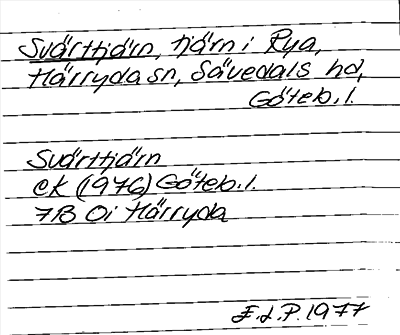 Svarttjärn, tjärn i Rya,
Härryda sn, Sävedals hd,
Göteb. l.
Svarttjärn
ek (1976) Göteb. l.
7B 0i Härryda
E.L.P. 1977